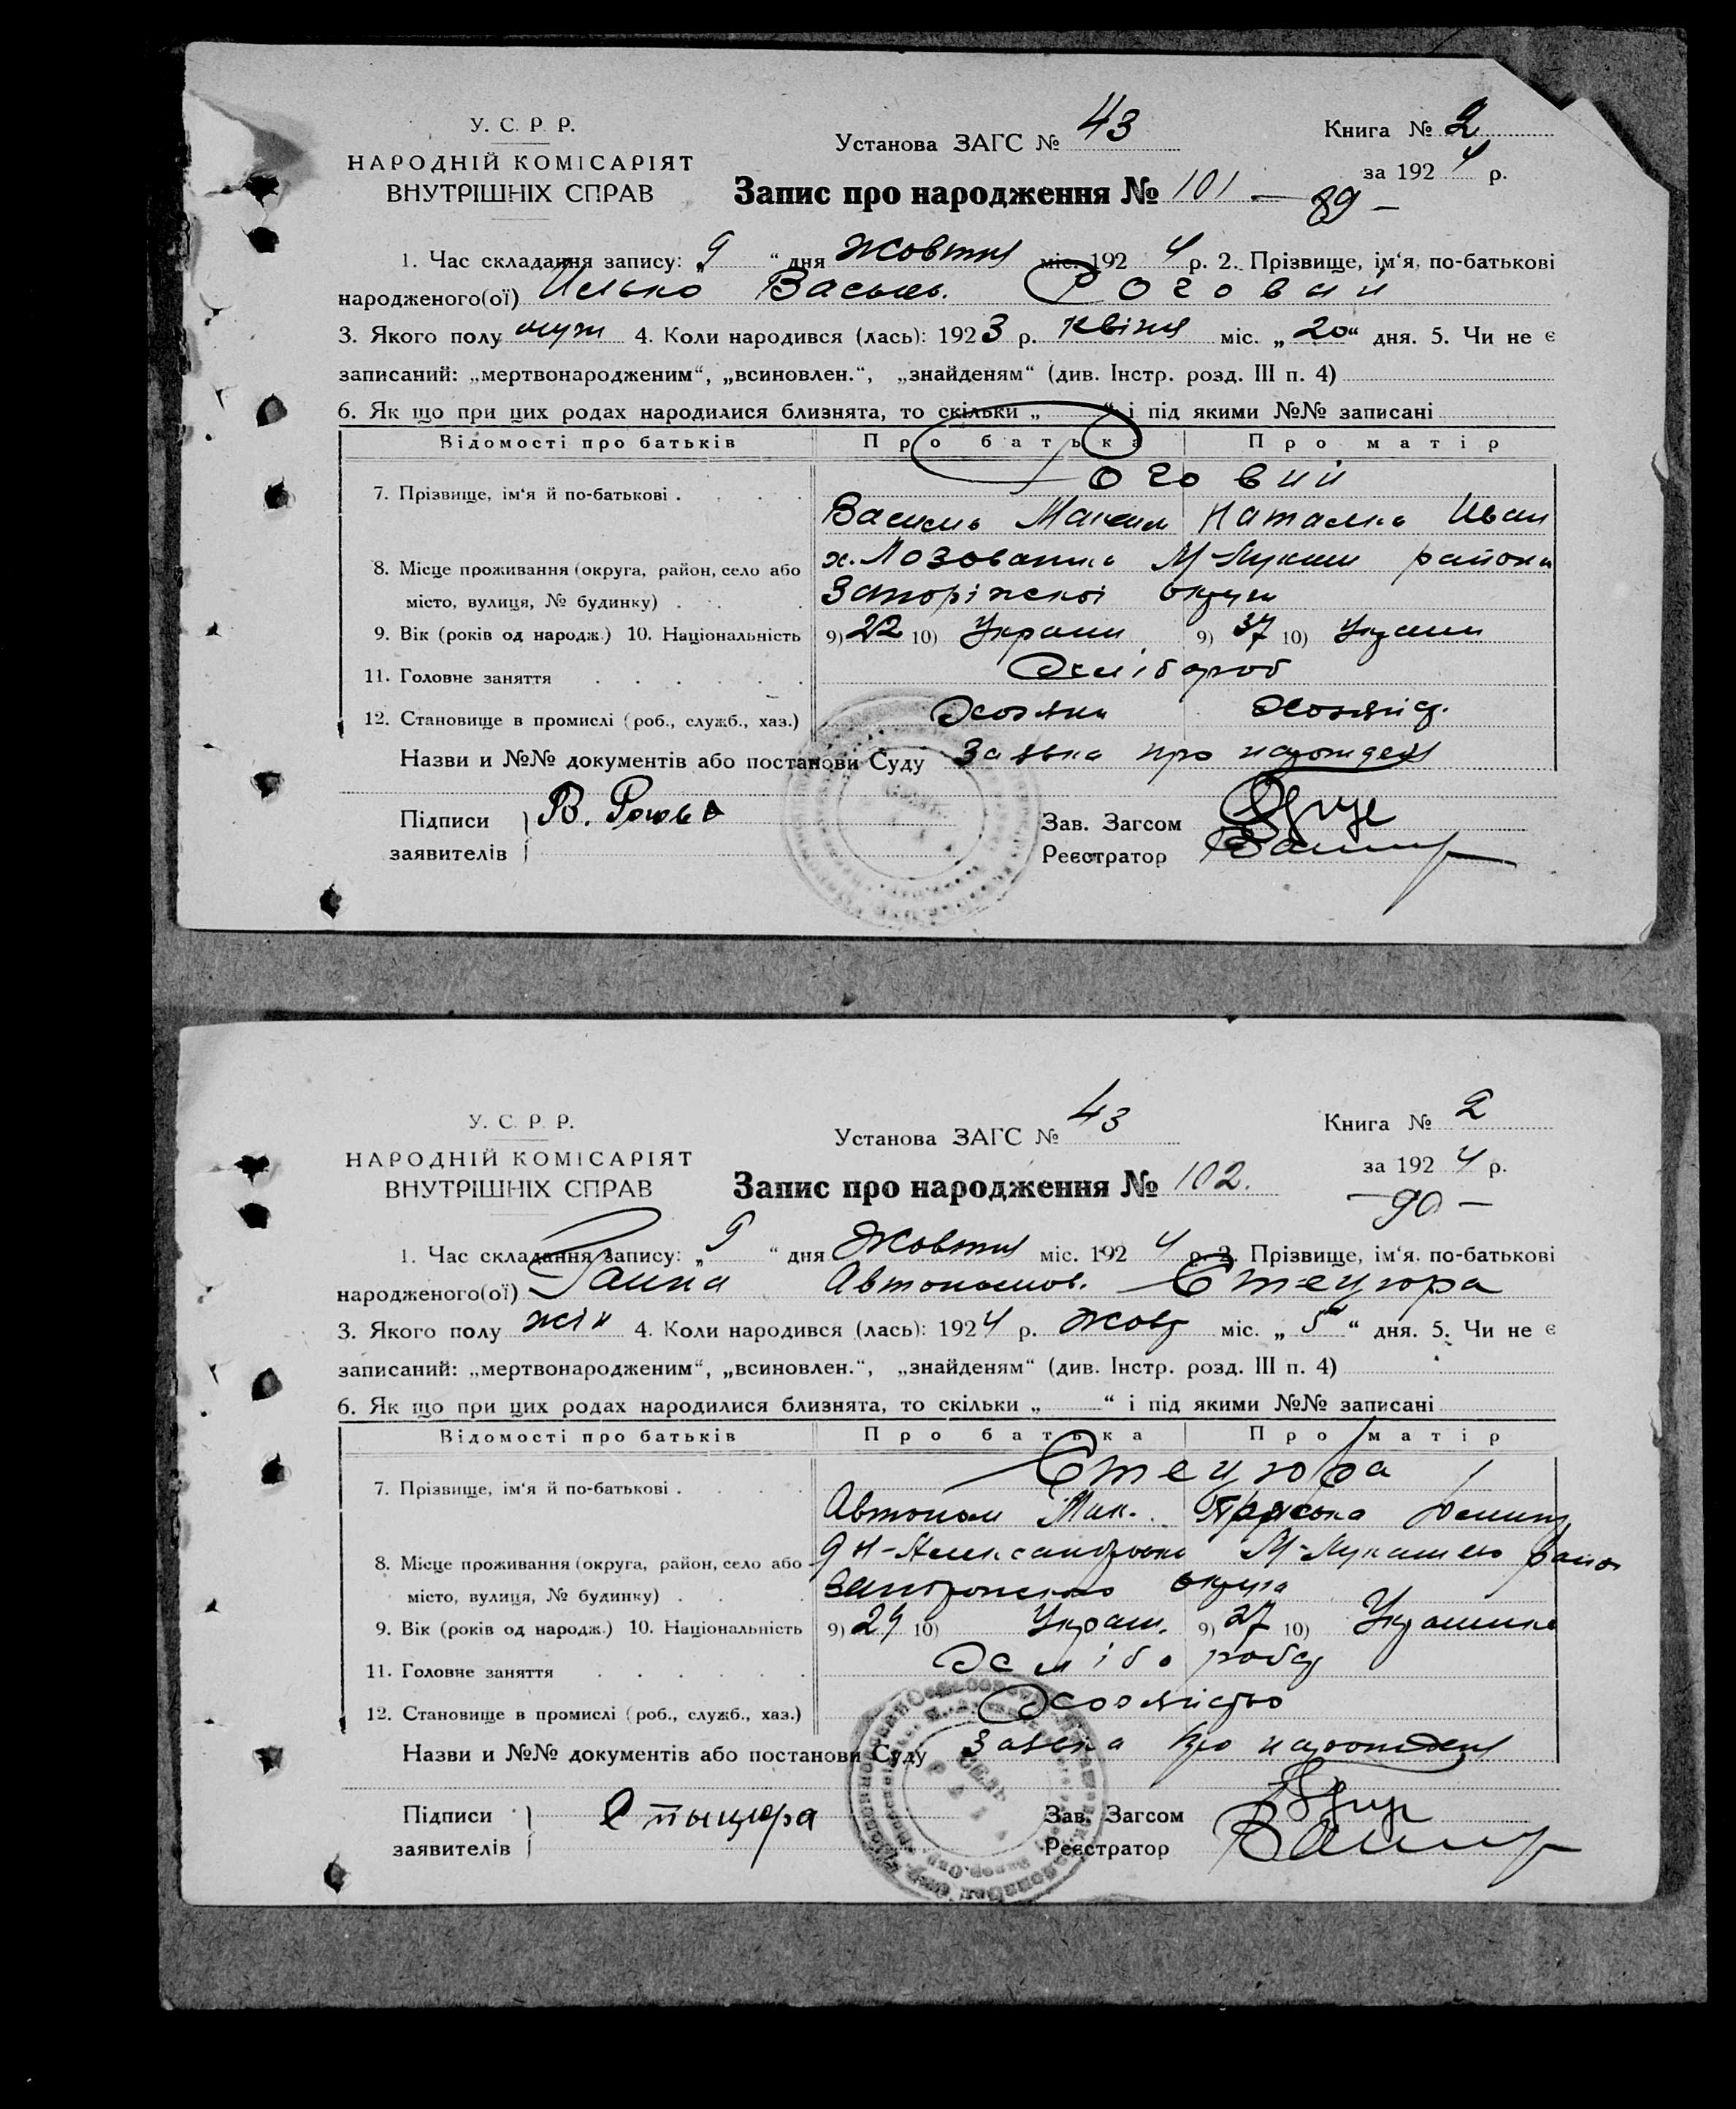 У. С. Р. Р.
НАРОДНІЙ КОМІСАРІЯТ
ВНУТРІШНІХ СПРАВ
Установа ЗАГС № 43
Книга № 2
за 1924 р.
Запис про народження № 101 — 89 —
1. Час складання запису: „9“ дня Жовтня міс. 1924 р. 2. Прізвище, ім‘я, по-батькові
народженого(ої) Илько Василь. Роговий
3. Якого полу муж 4. Коли народився (лась): 1923 р. Квітня міс. „20“ дня. 5. Чи не є
записаний: „мертвонародженим“, „всиновлен.“, „знайденям“ (див. Інстр. розд. III п. 4)
6. Як що при цих родах народилися близнята, то скільки „ “ і під якими №№ записані
Відомості про батьків Про батька Про матір
7. Прізвище, ім‘я й по-батькові . . . . Роговий
Василь Максим Наталка Иван
8. Місце проживання (округа, район, село або х. Лозоватка М-Лукаш района
місто, вулиця, № будинку) . . . Запоріжскоі округи
9. Вік (років од народж.) 10. Національність 9) 22 10) Украин 9) 37 10) Украин
11. Головне заняття . . . . . . Хлібороб
12. Становище в промислі (роб., служб., хаз.) Хозяин Хозяйст.
Назви и №№ документів або постанови Суду Заявка про народженя
Підписи В. Рогова
заявителів
Зав. Загсом
Реєстратор
У. С. Р. Р.
НАРОДНІЙ КОМІСАРІЯТ
ВНУТРІШНІХ СПРАВ
Установа ЗАГС № 43
Книга № 2
за 1924 р.
Запис про народження № 102. — 90 —
1. Час складання запису: „9“ дня Жовтня міс. 1924 р. 2. Прізвище, ім‘я, по-батькові
народженого(ої) Ганна Автономов. Стецюра
3. Якого полу жін 4. Коли народився (лась): 1924 р. Жовт міс. „5“ дня. 5. Чи не є
записаний: „мертвонародженим“, „всиновлен.“, „знайденям“ (див. Інстр. розд. III п. 4)
6. Як що при цих родах народилися близнята, то скільки „ “ і під якими №№ записані
Відомості про батьків Про батька Про матір
7. Прізвище, ім‘я й по-батькові . . . . Стецюра
Автоном Мик. Приська
8. Місце проживання (округа, район, село або Н-Александровка М-Лукашево район
місто, вулиця, № будинку) . . . округа
9. Вік (років од народж.) 10. Національність 9) 29 10) Украин. 9) 27 10) Украинка
11. Головне заняття . . . . . . Хлібороб
12. Становище в промислі (роб., служб., хаз.) Хозяйство
Назви и №№ документів або постанови Суду Заявка про народженя
Підписи Стыцюра
заявителів
Зав. Загсом
Реєстратор